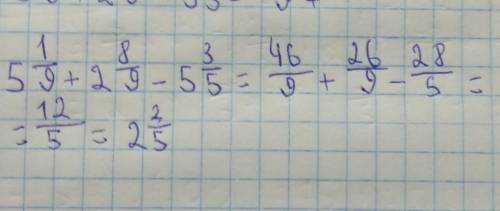 5 1/9 + 2 8/9 - 5 3/5 = 46/9 + 26/9 - 28/5 =
= 12/5 = 2 2/5